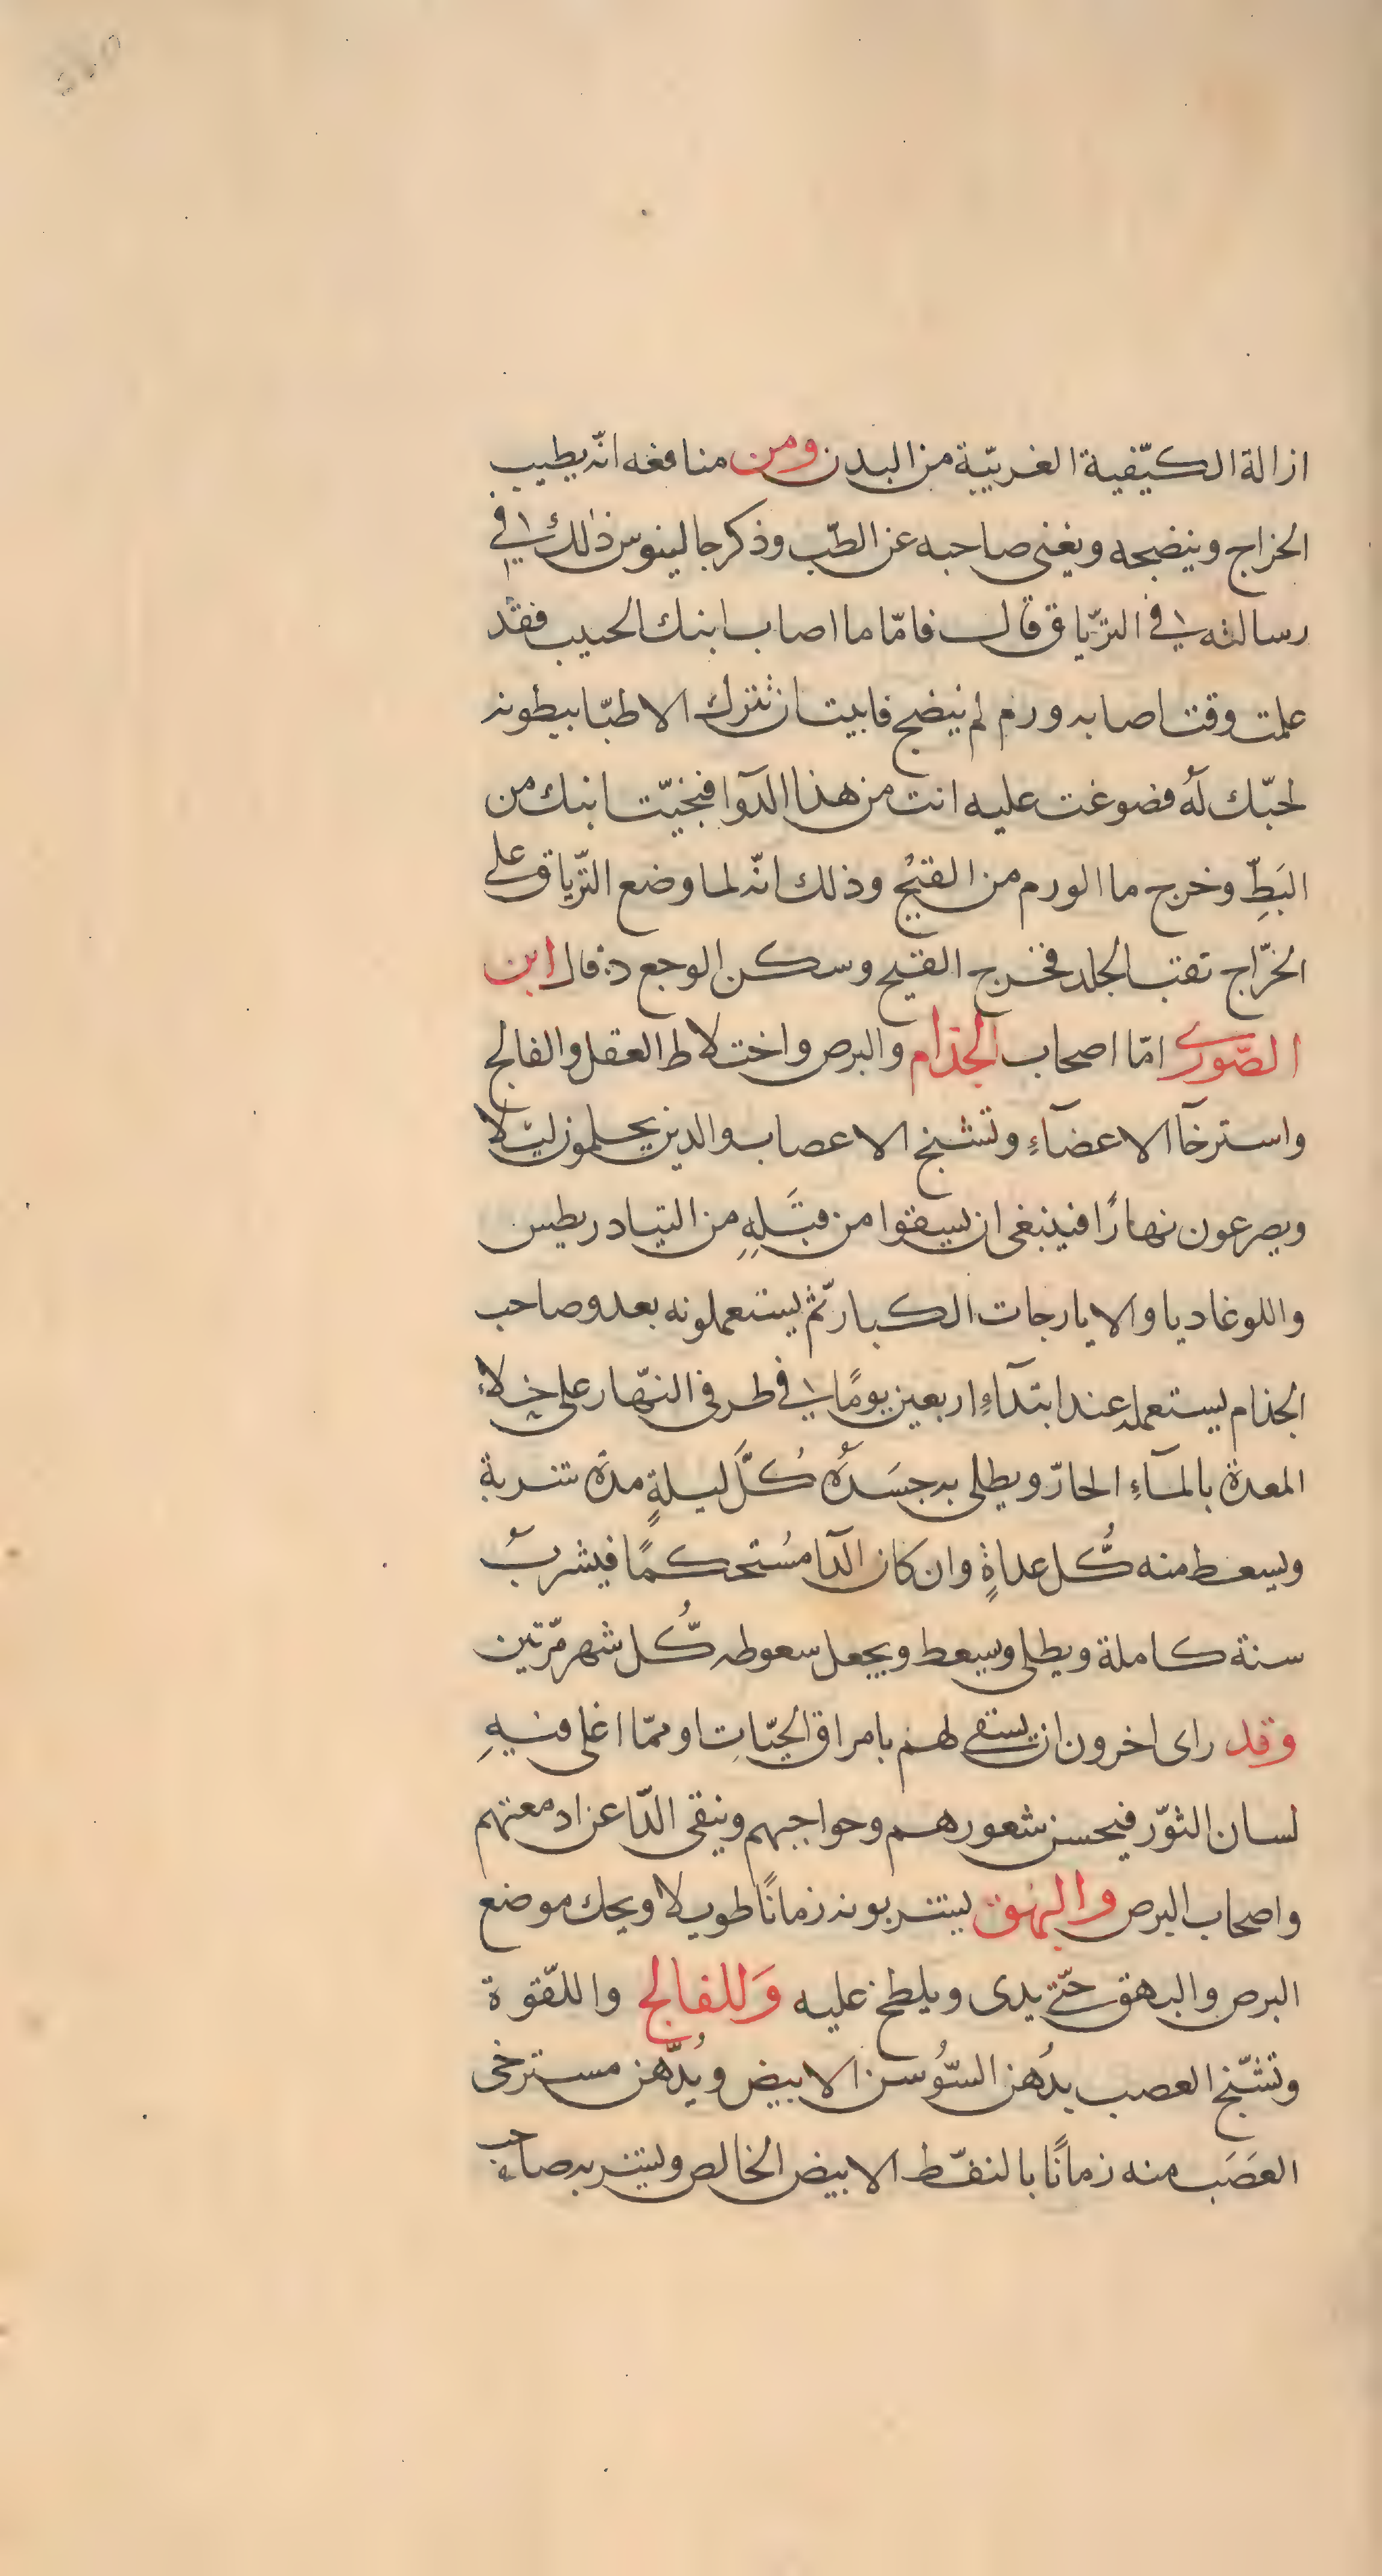 ازالة الكيّفية الغريبّية من البدن ومن منافعه انّه يطيب
الخراج وينضجه ويغنى صاحبه عن الطّب وذكر جالينوس ذلك في
رسالته في الترّياق قال فامّا ما اصاب ابنك الحبيب فقد
علمت وقت اصابه ورم لم ينضج فابيت ان تترك الاطبّا يبطونه
لحبّك له فضوغت عليه انت من هذا الدآوا فنجيّت ابنك من
البَطِّ وخرج ما الورم من القيح وذلك انّه لما وضع الترّياق على
الخرّاج تقب الجلد فخرج القيح وسكن الوجع قال ابن
الصّورى امّا اصحاب الجذام والبرص واختلاط العقل والفالج
واسترخآ الاعضآءِ وتشنج الاعصاب والدين يحلمون ليلا
ويصرعون نهارًا فينبغى ان يسقوا من قبَلهِ من التيادريطيس
واللوغاديا والايارجات الكبار ثمّ يستعملونه بعد وصاحب
الجذام يستعمله عند ابتدآءِ اربعين يومًا في طرفى النهّار على خلاء
المعدة بالمآءِ الحارّ ويطلى به جسَدُه كُلَّ ليلةٍ مدة شربة
ويسعط منه كُّل عداةٍ وان كان الدآ مُستحكمًا فيشربُ
سنة كاملة ويطلى ويسعط ويجعل سعوطه كُّل شهر مرّتين
وقد راى اخرون ان يستقى لهم بامراق الحيّاتِ او ممّا اغلى فيهِ
لسان الثوّر فيحسن شعورهم وحواجبهم وينقى الدّا عن ادمعتهم
واصحاب البرص والبهق يشربونه زمانًا طويلا ويحك موضع
البرص والبهق حتّى يدى ويلطخ عليه وَللفالج واللقّوة
وتشنّج العصب بدُهن السّوُسن الابيض ويُدّهن مسترخى
العَصَب منه زمانًا بالنفّط الابيض الخالص ويشربه صاحب